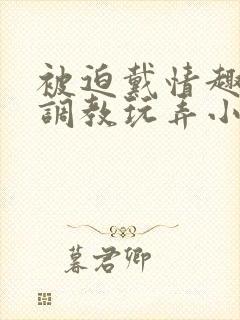 被迫戴情趣
調教玩弄小
暮君卿